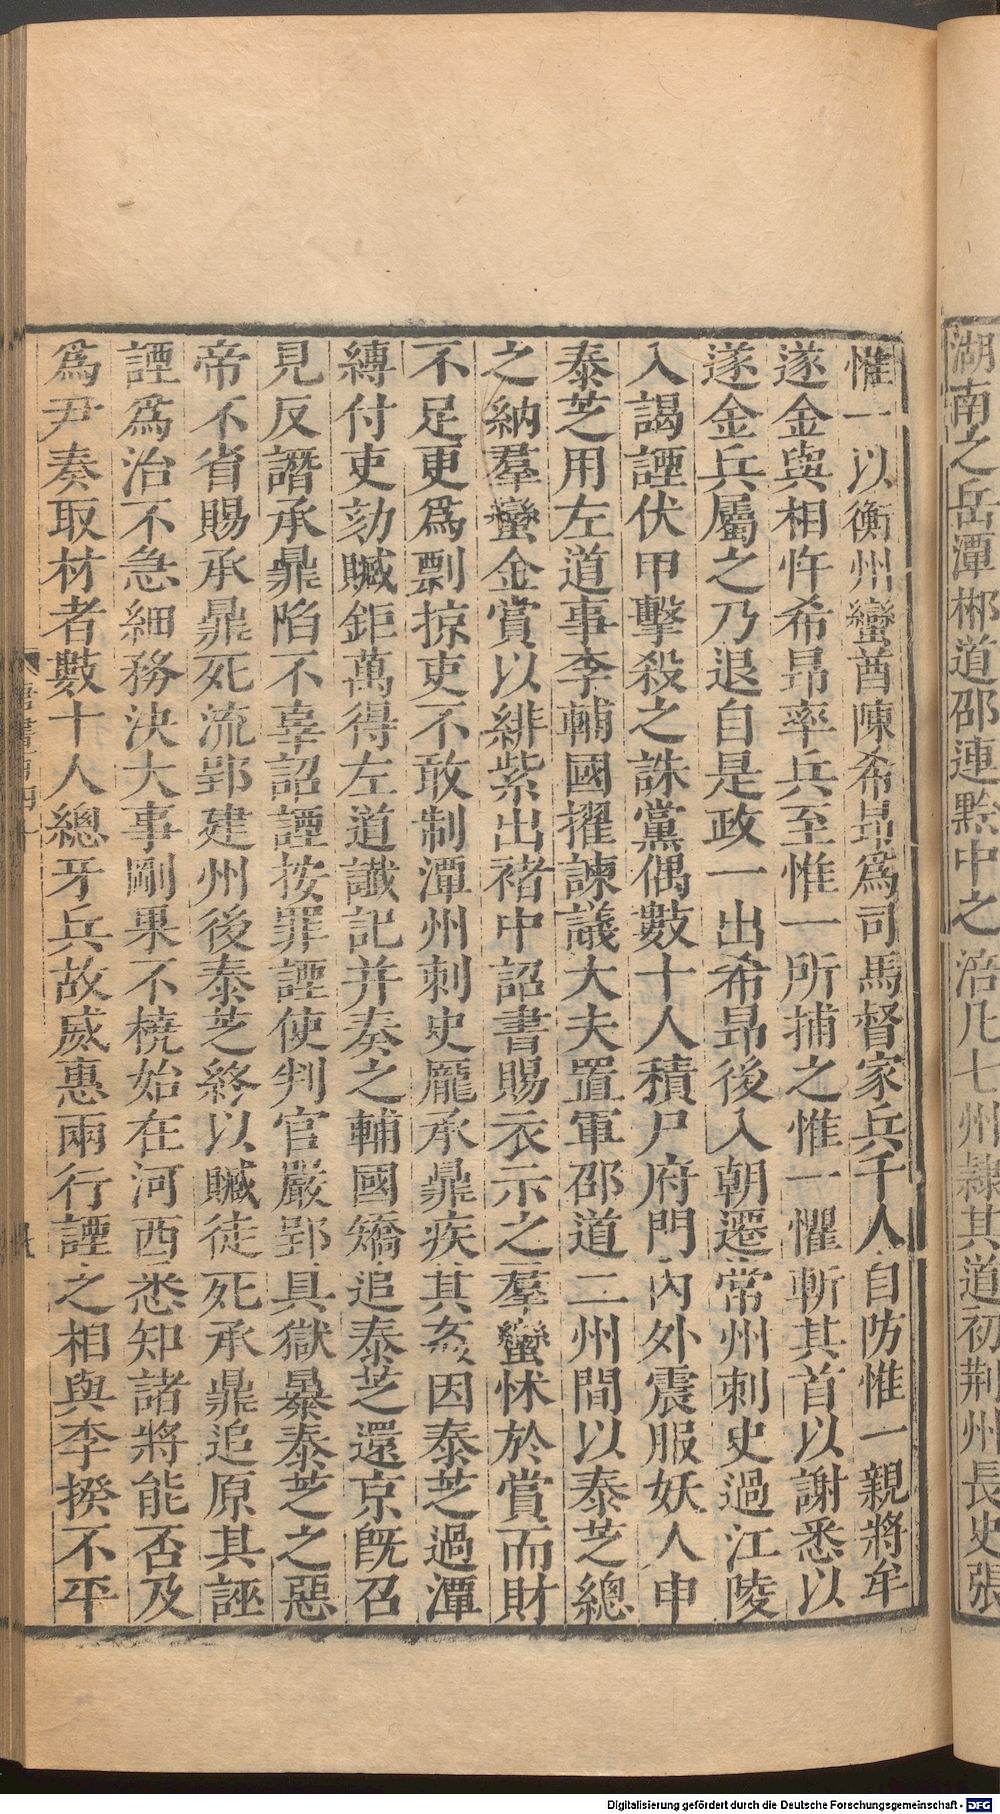 湖南之岳潭郴道邵連黔中之涪凡七州隸其道初荆州長史張
惟一以衡州蠻酋陳希昂爲司馬督家兵千人自防惟一親將牟
遂金與相忤希昂率兵至惟一所捕之惟一懼斬其首以謝悉以
遂金兵屬之乃退自是政一出希昂後入朝遷常州刺史過江陵
入謁諲伏甲擊殺之誅黨偶數十人積尸府門內外震服妖人申
泰芝用左道事李輔國擢諫議大夫置軍邵道二州間以泰芝總
之納羣蠻金賞以緋紫出褚中詔書賜衣示之羣蠻怵於賞而財
不足更爲剽掠吏不敢制潭州刺史龐承鼎疾其姦因泰芝過潭
縛付吏劾贓鉅萬得左道讖記并奏之輔國矯追泰芝還京旣召
見反譖承鼎陷不辜詔諲按罪諲使判官嚴郢具獄暴泰芝之惡
帝不省賜承鼎死流郢建州後泰芝終以贓徒死承鼎追原其誣
諲爲治不急細務決大事剛果不橈始在河西悉知諸將能否及
爲尹奏取材者數十人總牙兵故威惠兩行諲之相與李揆不平
Digitalisierung gefördert durch die Deutsche Forschungsgemeinschaft - DFG